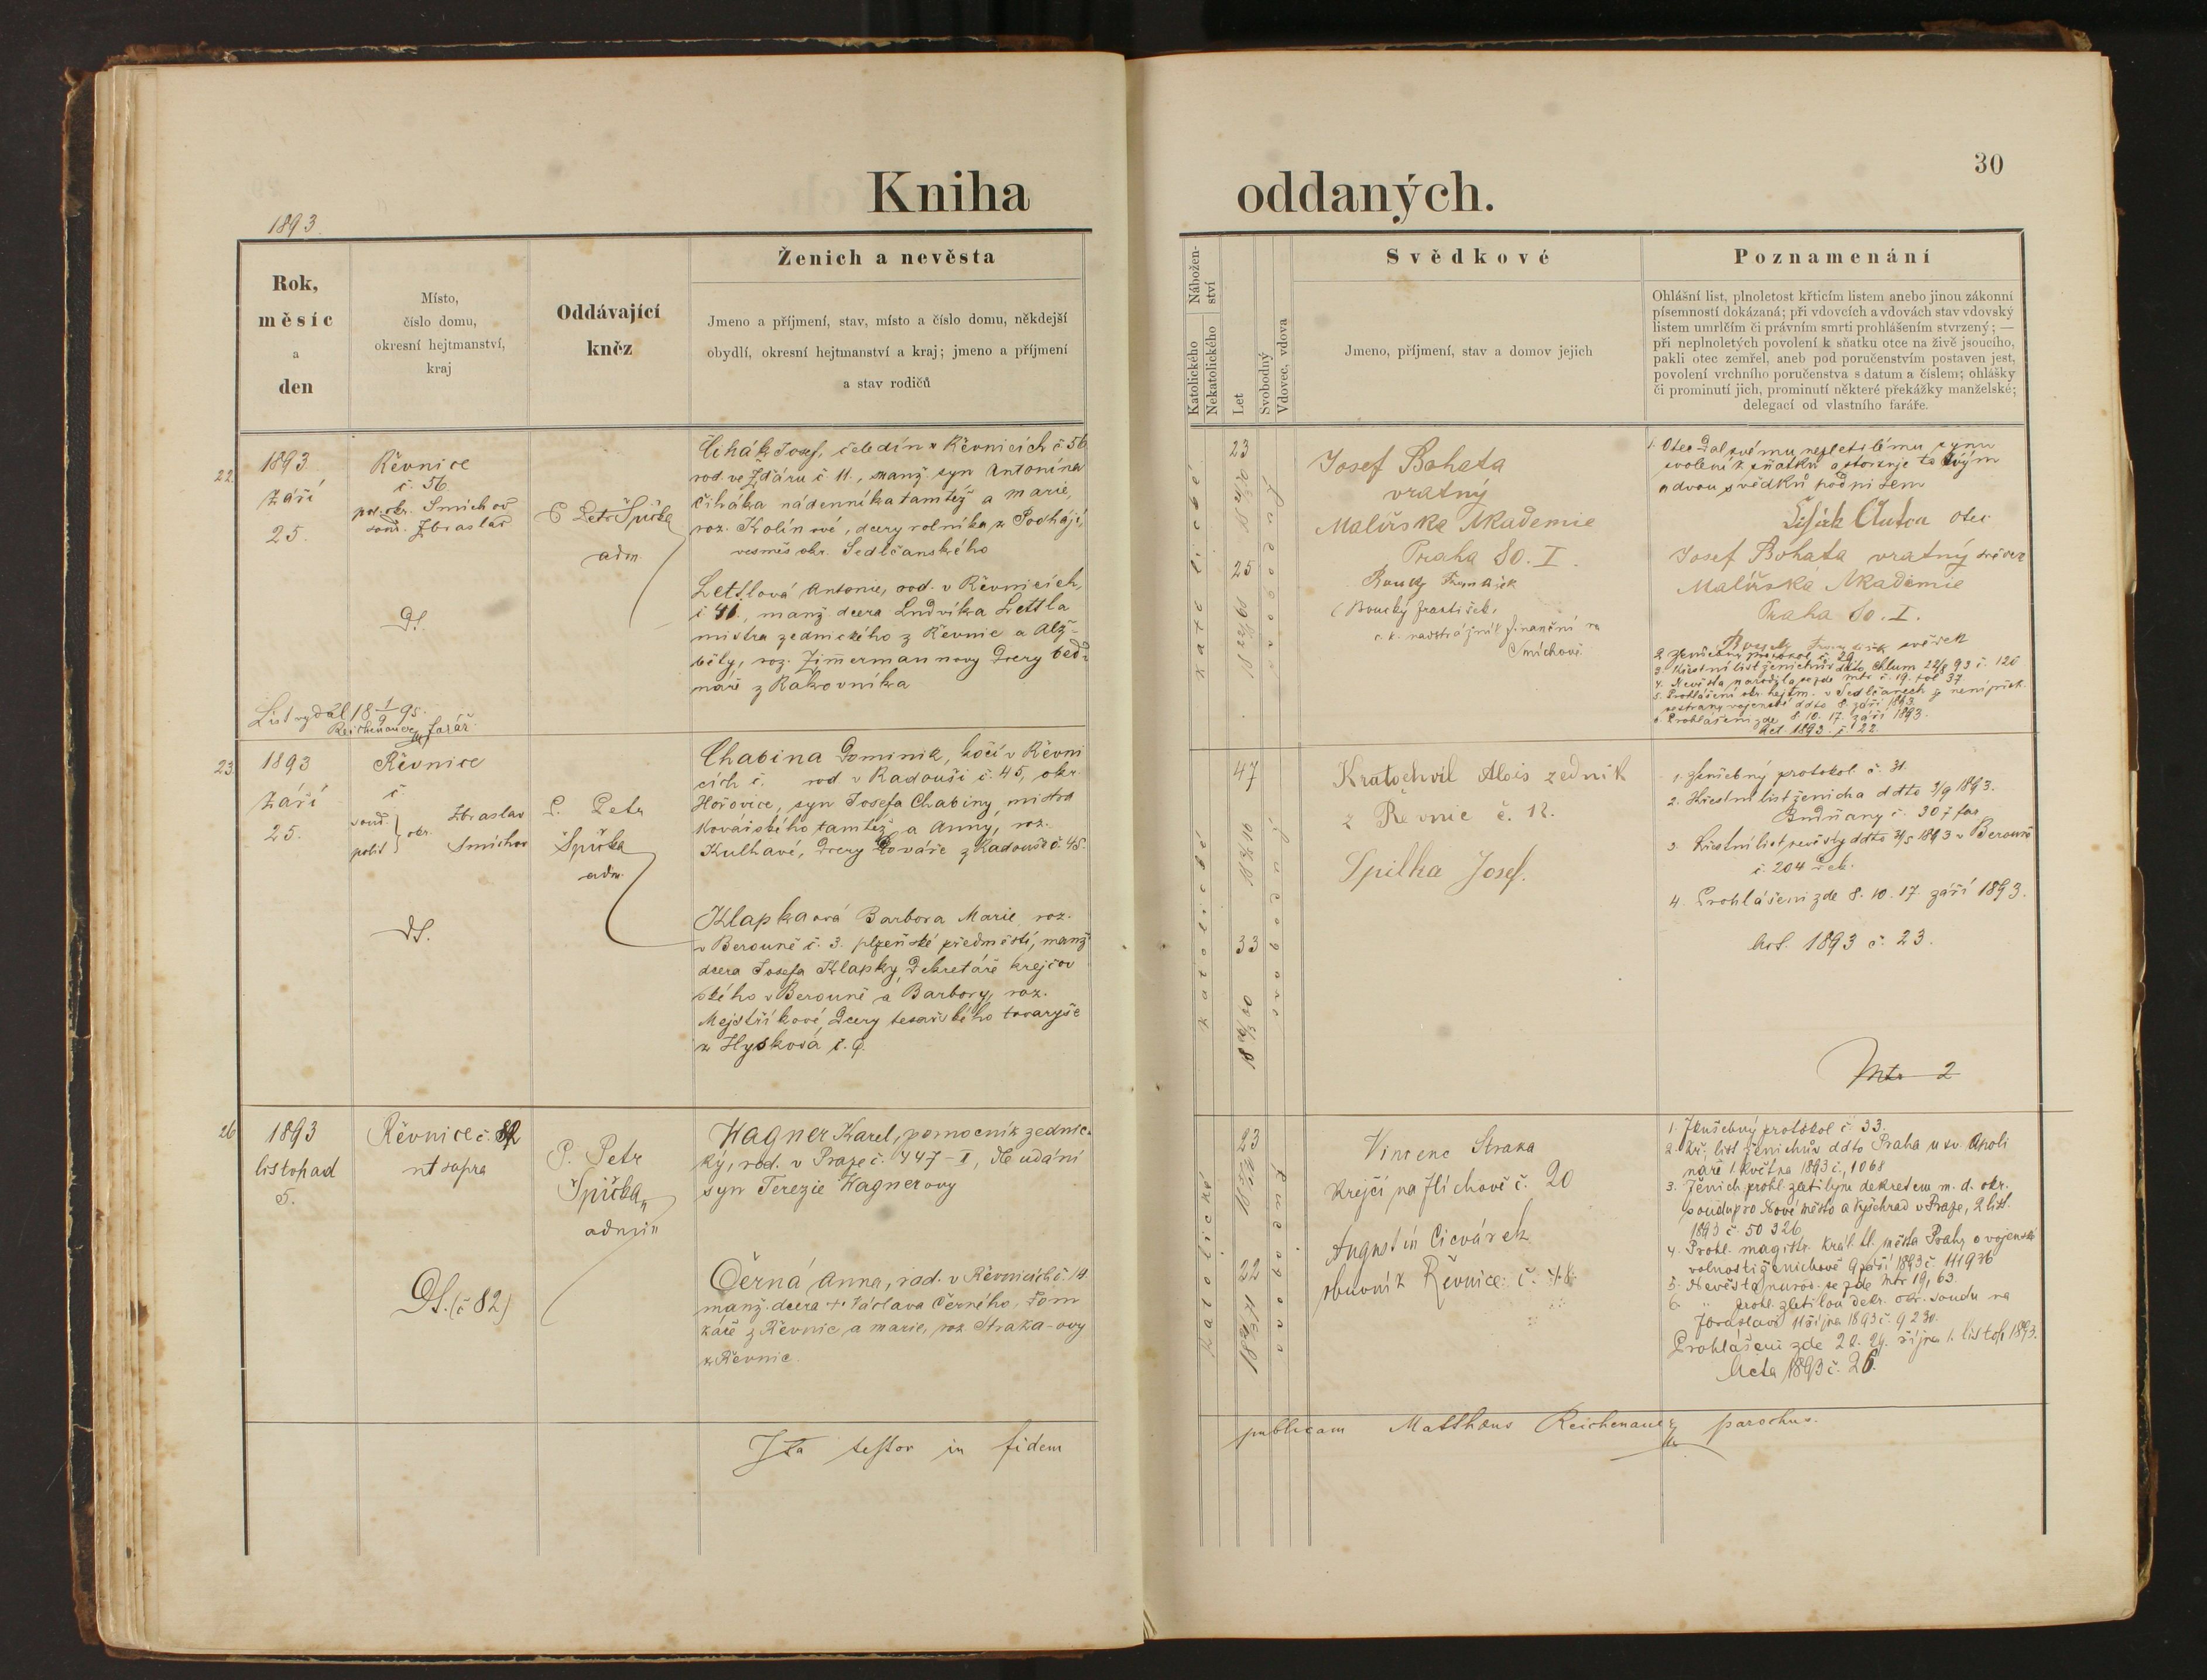 30
Kniha oddaných.
1893
Rok,
měsíc
a
den
Místo,
číslo domu,
okresní hejtmanství,
kraj
Oddávající
kněz
Ženich a nevěsta
Jmeno a příjmení, stav, místo a číslo domu, někdejší
obydlí, okresní hejtmanství a kraj; jmeno a příjmení
a stav rodičů
Nábožen-
ství
Katolického
Nekatolického
Let
Svobodný
Vdovec, vdova
Svědkové
Jmeno, příjmení, stav a domov jejich
Poznamenání
Ohlášní list, plnoletost křticím listem anebo jinou zákonní
písemností dokázaná; při vdovcích a vdovách stav vdovský
listem umrlčím či právním smrti prohlášením stvrzený; —
při neplnoletých povolení k sňatku otce na živě jsoucího,
pakli otec zemřel, aneb pod poručenstvím postaven jest,
povolení vrchního poručenstva s datum a číslem; ohlášky
či prominutí jich, prominutí některé překážky manželské;
delegací od vlastního faráře.
22.
1893
Září
25.
Řevnice
č. 56
pol. okr. Smíchov
soud. Zbraslav
P. Petr Špička
adm.
Čihák Josef, čeledín v Řevnicích č 56
rod. ve Ždáru č 11., manž. syn Antonína
Čiháka nádenníka tamtéž a Marie,
roz. Kolínové, dcery rolníka z Podhájí,
vesměs okr. Sedlčanského
Lettlová Antonie, rod. v Řevnicích,
č 41., manž. dcera Ludvíka Lettla
mistra zednického z Řevnic a Alž-
běty, roz. Zimermannovy dcery bed-
náře z Rakovníka
List vydal 18 1/9 95.
Reichenauer farář
katolické
23
25
svobodný
Josef Bohata
vratný
Malířska Akademie
Praha So. I.
Bouky František
(Boucký František,
c. k. nadstrážník finanční na
Smíchově
1. Otec dal svému nezletilému synu
svolení k sňatku a stvrzuje to svým
a dvou svědků podpisem
otec
Josef Bohata vratný svědek
Malířska Akademie
Praha So. I.
svědek
2. Zkušebný protokol č. 29
3. Křestní list ženichův ddto Chlum 22/8 93 č. 126
4. Nevěsta narodila se zde mtr č. 19. fol 37
5. Prohlášení okr. hejtm. v Sedlčanech že není přek.
se strany vojenské ddto 8. září 1893.
6. Prohlášení zde 8. 10. 17. září 1893.
Act. 1893. č. 22
23.
1893
Září
25.
Řevnice
č.
soud. } okr. Zbraslav
polit } Smíchov
P. Petr
Špička
adm.
Chabina Dominik, kočí v Řevni
cích č. rod v Radouši č. 45, okr.
Hořovice, syn Josefa Chabiny, mistra
kovářského tamtéž a Anny, roz.
Kulhavé, dcery kováře z Radouše č. 45.
Klapka ová Barbora Marie roz.
v Berouně č. 3. plzeňské předměstí, manž
dcera Josefa Klapky, dekretáře krejčov
ského v Berouně a Barbory, roz.
Mejstříkové, dcery tesařského tovaryše
z Hyskova č. 9.
katolické
47
33
svobodní
Kratochvil Alois zedník
z Řevnic č. 12.
Spilka Josef.
1. Zkušebný protokol č. 31.
2. Křestní list ženicha ddto 3/9 1893.
č. 307 far.
3. Křestní list nevěsty ddto 3/5 1893 v Berouně
č. 204 děk.
4. Prohlášení zde 8. 10. 17 září 1893.
Act. 1893 č. 23.
Mtr 2
26
1893
listopad
5.
Řevnice č. 82
ut supra
DS. (č 82)
P. Petr
Špička,
admin
Wagner Karel, pomocník zednic-
ký, rod. v Praze č. 447-I, dle udání
syn Terezie Wagnerovy
Černá Anna, rod. v Řevnicích č. 14
manž. dcera + Václava Černého, dom
káře z Řevnic a Marie, roz. Straka-ovy
z Řevnic.
katolické
23
22
svobodní
Vincenc Straka
krejčí na Jíchově č. 20
Augustin Cicvárek
obuvník Řevnice č. 48
1. Zkušebný protokol č 33.
2. Kř. list ženichův ddto Praha u sv. Apoli
náře 1. května 1893 č. 1068
3. Ženich prohl. zletilým dekretem m. d. okr.
soudu pro Nové město a Vyšehrad v Praze, 2 list.
1893 č. 50326
4. Prohl. magistr. král. hl. města Prahy o vojenské
volnosti ženichově 9 září 1893 č. 111936
5. Nevěsta narod. se zde mtr 19, 63.
6. " prohl. zletilou dekr. okr. soudu na
Zbraslavi 11 října 1893 č. 9230.
Prohlášení zde 22. 29. října 1. listop. 1893.
Acta 1893 č. 26.
Ita testor in fidem publicam Matthäus Reichenauer parochus.